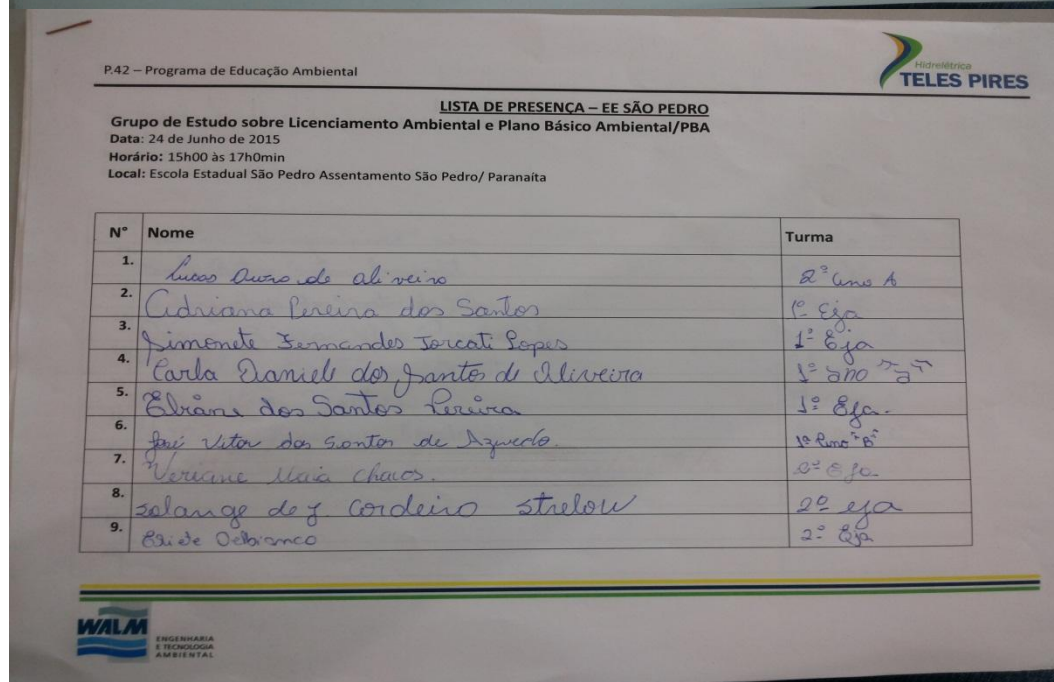 P.42 – Programa de Educação Ambiental
Hidrelétrica
TELES PIRES
LISTA DE PRESENÇA – EE SÃO PEDRO
Grupo de Estudo sobre Licenciamento Ambiental e Plano Básico Ambiental/PBA
Data: 24 de Junho de 2015
Horário: 15h00 às 17h0min
Local: Escola Estadual São Pedro Assentamento São Pedro/ Paranaíta
N° Nome Turma
1. Lucas de oliveira 2º ano A
2. Adriana Pereira dos Santos 1º Eja
3. Simonete Fernandes Torcati Lopes 1º Eja
4. Carla Daniele dos Santos de Oliveira 1º ano "a"
5. dos Santos Pereira 1º Eja.
6. José Vitor dos Santos de Azevedo. 1º Ano "B"
7. Veriane Maia Chaves. 2º Eja
8. solange de j. cordeiro strelow 2º eja
9. Delbianco 2º Eja
WALM
ENGENHARIA
E TECNOLOGIA
AMBIENTAL